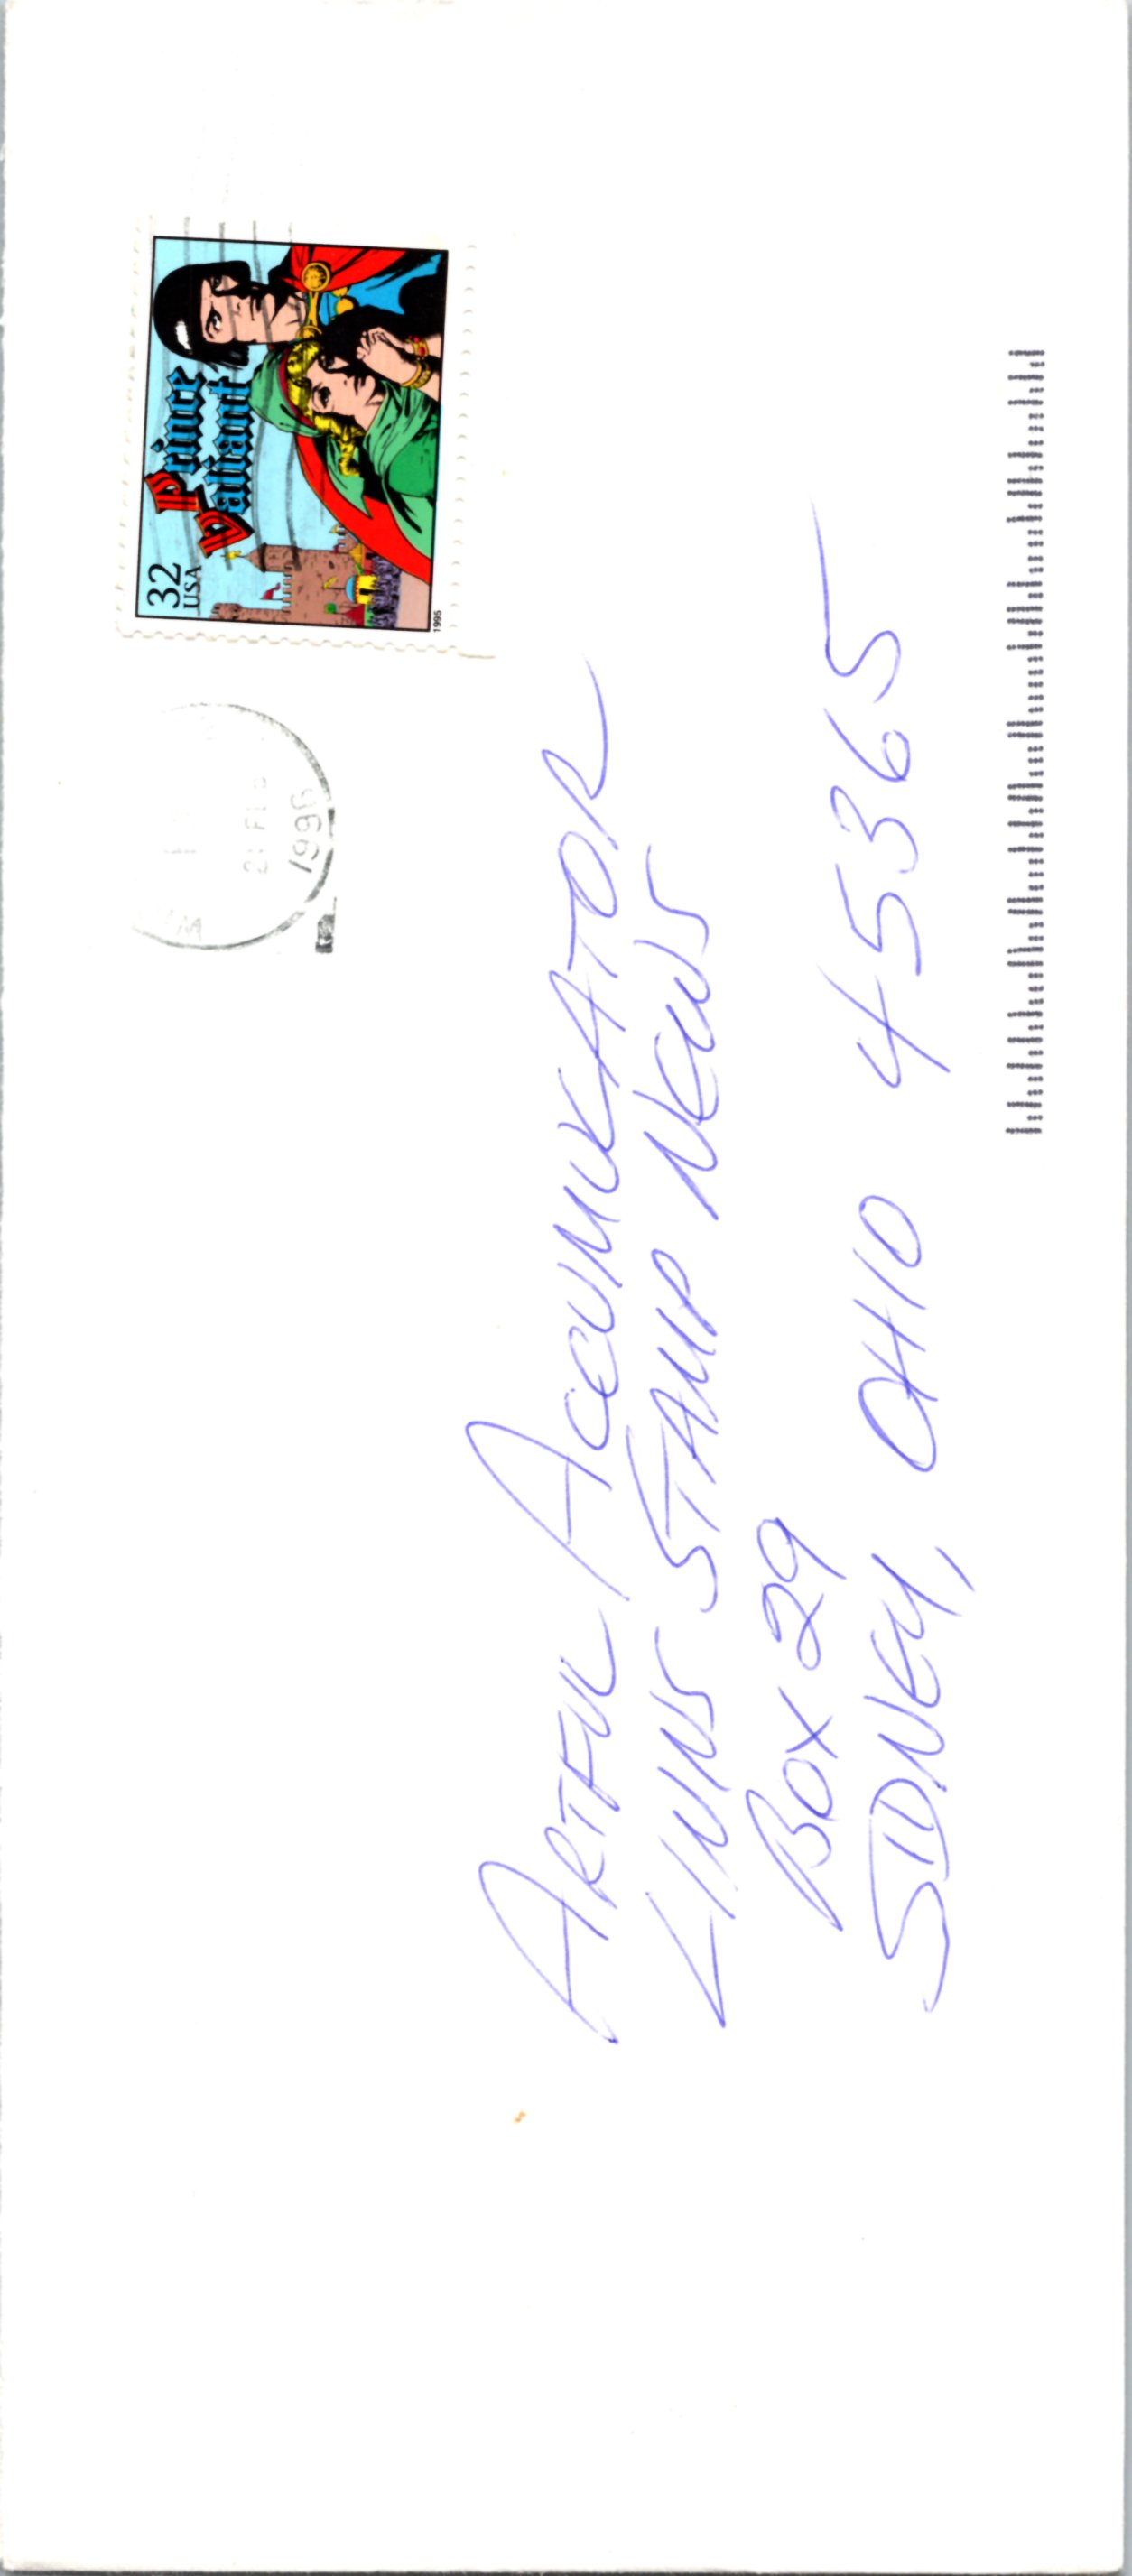 Prince
Valiant
32
USA
1995
1996
ARTFUL ACCUMULATOR
LINNS STAMP NEWS
BOX 29
SIDNEY, OHIO 45365